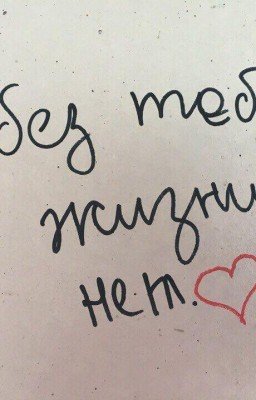 без теб
жизни
нет.